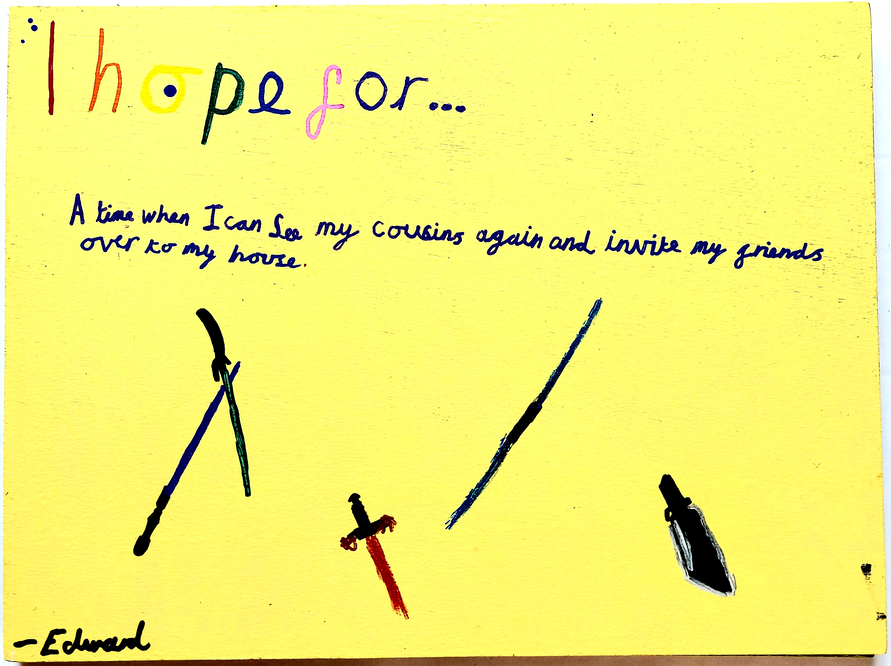 I hope for...
A time when I can See my cousins again and invite my friends
over to my house.
- Edward